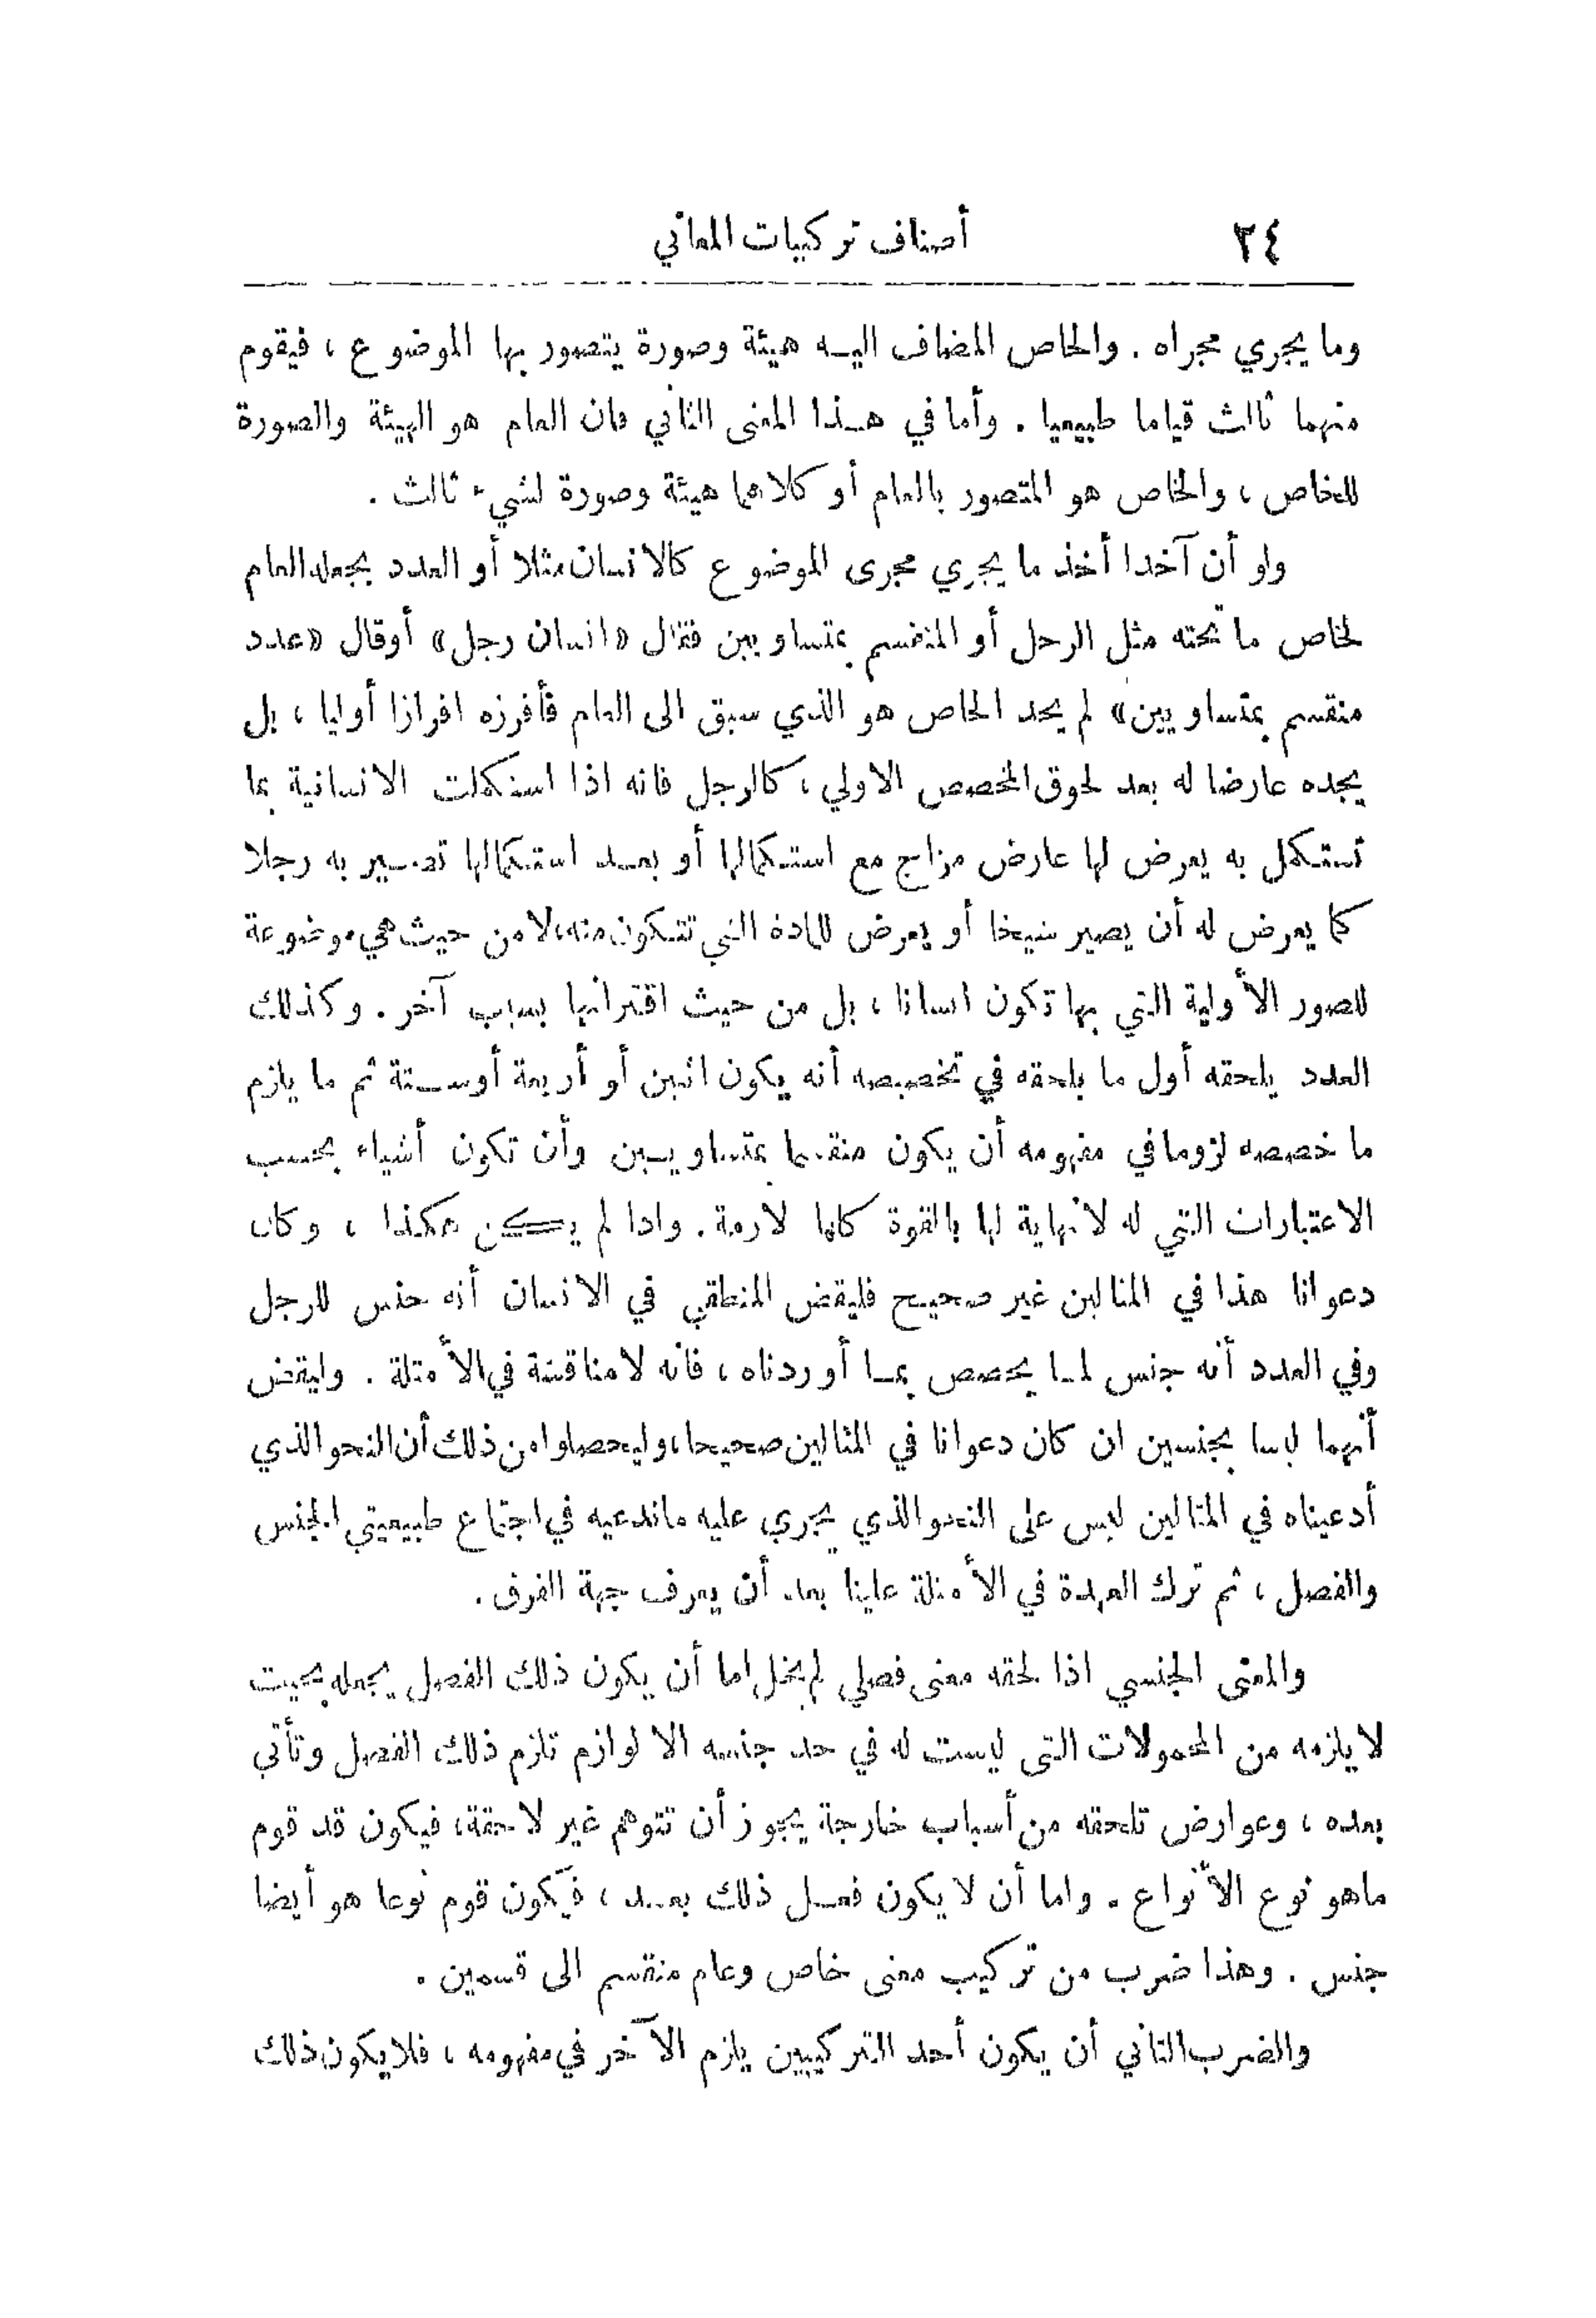 ٢٤ أصناف تركيبات المعاني
وما يجري مجراه . والخاص المضاف اليه هيئة وصورة يتصور بها الموضوع ، فيقوم
منهما ثالث قياما طبيعيا . وأما في هذا المعنى الثاني فان العام هو الهيئة والصورة
للخاص ، والخاص هو المتصور بالعام أو كلاهما هيئة وصورة لشيء ثالث .
ولو أن آخذا أخذ ما يجري مجرى الموضوع كالانسان مثلا أو العدد بجعله العام
لخاص ما تحته مثل الرجل أو المنقسم بمتساويين فقال «انسان رجل» أوقال «عدد
منقسم بمتساويين» لم يجد الخاص هو الذي سبق الى العام فأفرزه افرازا أوليا ، بل
يجده عارضا له بعد لحوق المخصص الاولي ، كالرجل فانه اذا استكملت الانسانية بما
تستكمل به يعرض لها عارض مزاج مع استكمالها أو بعد استكمالها تصير به رجلا
كما يعرض له أن يصير شيخا أو يعرض للمادة التي تتكون منه، لا من حيث هي موضوعة
للصور الأولية التي بها تكون انسانا ، بل من حيث اقترانها بسبب آخر . وكذلك
العدد يلحقه أول ما يلحقه في تخصيصه أنه يكون اثنين أو أربعة أو ستة ثم ما يلزم
ما خصصه لزوما في مفهومه أن يكون منقسما بمتساويين وأن تكون أشياء بحسب
الاعتبارات التي له لانهاية لها بالقوة كلها لازمة . واذا لم يكن هكذا ، وكان
دعوانا هذا في المثالين غير صحيح فليقض المنطقي في الانسان أنه جنس للرجل
وفي العدد أنه جنس لما يخصص بما أوردناه ، فانه لامناقشة في الأمثلة . وليقض
أنهما ليسا بجنسين ان كان دعوانا في المثالين صحيحا، وليحصلوا من ذلك أن النحو الذي
أدعيناه في المثالين ليس على النحو الذي يجري عليه ماندعيه في اجتماع طبيعيتي الجنس
والفصل ، ثم ترك العهدة في الأمثلة علينا بعد أن يعرف جهة الفرق .
والمعنى الجنسي اذا لحقه معنى فصلي لم يخل اما أن يكون ذلك الفصل يجعله بحيث
لا يلزمه من المحمولات التى ليست له في حد جنسه الا لوازم تلزم ذلك الفصل وتأتي
بعده ، وعوارض تلحقه من أسباب خارجة يجوز أن تتوهم غير لاحقة، فيكون قد قوم
ماهو نوع الأنواع . واما أن لا يكون فعل ذلك بعد ، فيكون قوم نوعا هو أيضا
جنس . وهذا ضرب من تركيب معنى خاص وعام منقسم الى قسمين .
والضرب الثاني أن يكون أحد التركيبين يلزم الآخر في مفهومه ، فلا يكون ذلك